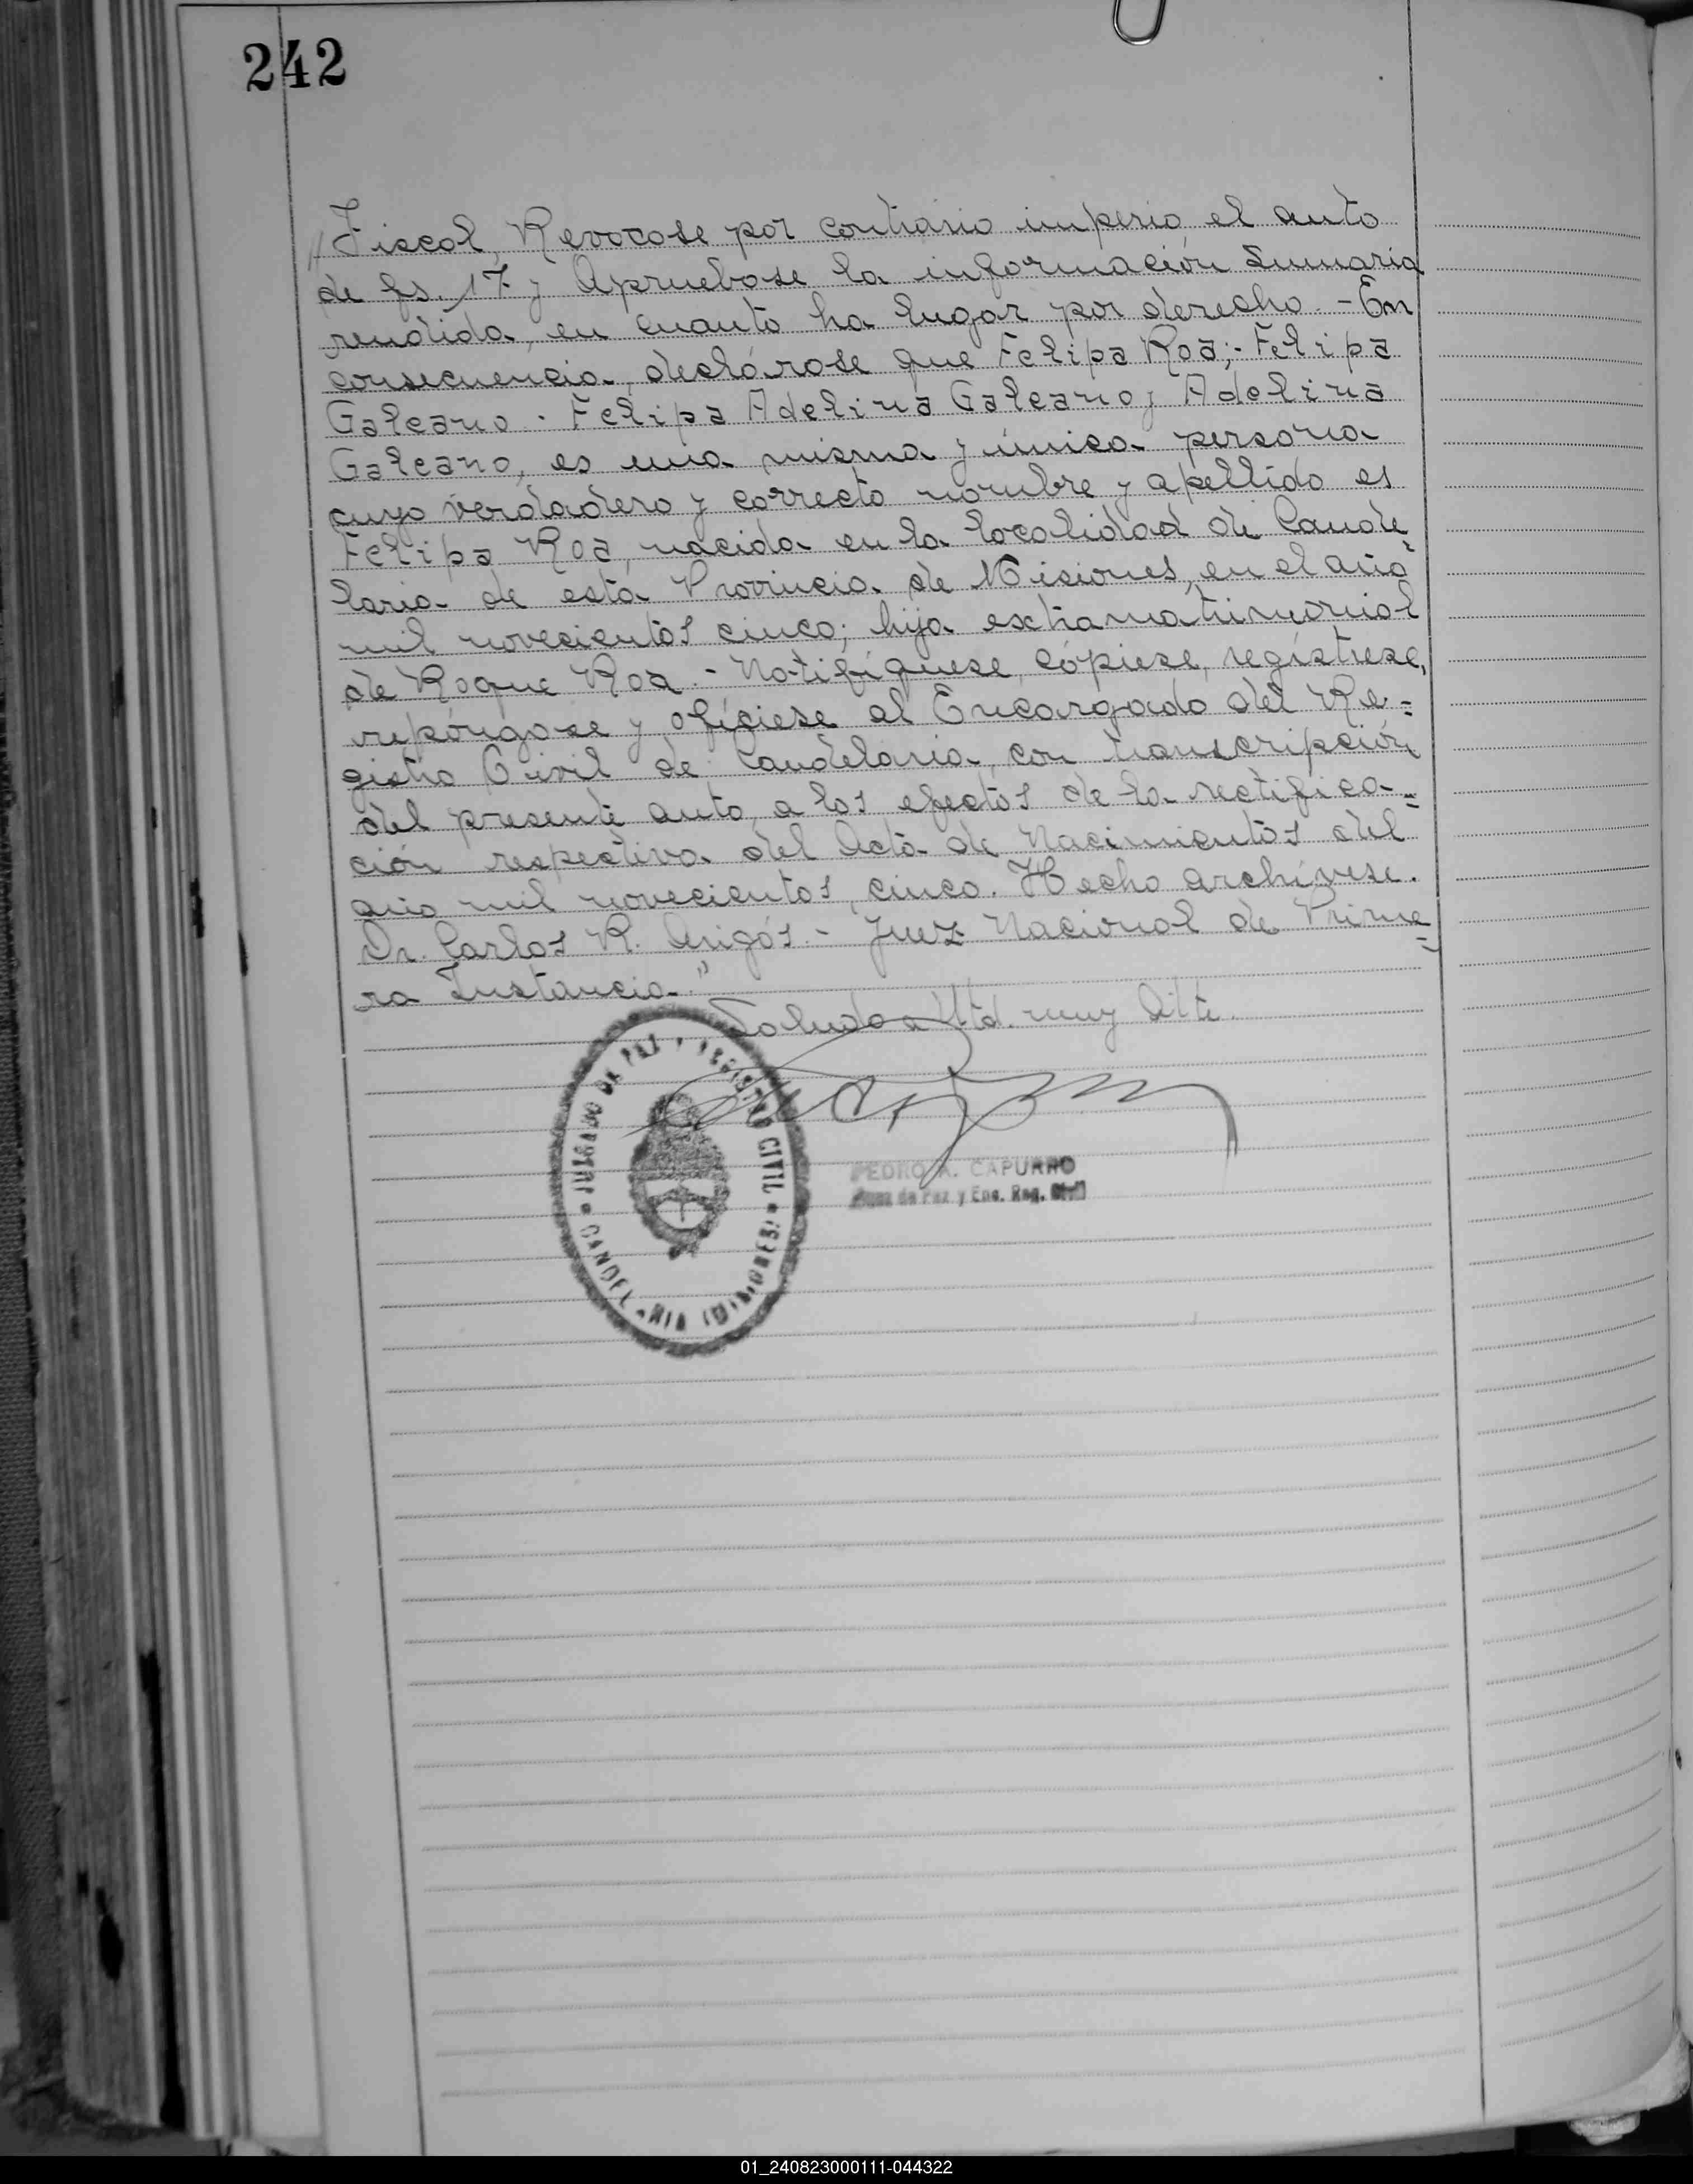 242
//Fiscal, Revocase por contrario imperio el auto
de fs. 17 y Apruebase la información Sumaria
rendida, en cuanto ha lugar por derecho. - En
consecuencia, declárase que Felipa Roa; - Felipa
Galeano - Felipa Adelina Galeano y Adelina
Galeano, es una misma y única persona
cuyo verdadero y correcto nombre y apellido es
Felipa Roa, nacida en la localidad de Cande=
laria de esta Provincia de Misiones, en el año
mil novecientos cinco; hija extramatrimonial
de Roque Roa. - Notifíquese, cópiese, regístrese,
repóngase y ofíciese al Encargado del Re=
gistro Civil de Candelaria, con transcripción
del presente auto, a los efectos de la rectifica=
ción respectiva del Acta de Nacimientos del
año mil novecientos cinco. Hecho archívese.
Dr. Carlos R. Arigós. - Juez Nacional de Prime=
ra Instancia."
Saludo a Utd. muy Atte.
JUZGADO DE PAZ Y REGISTRO CIVIL
CANDELARIA (MISIONES)
PEDRO A. CAPURRO
Juez de Paz y Enc. Reg. Civil
01_240823000111-044322